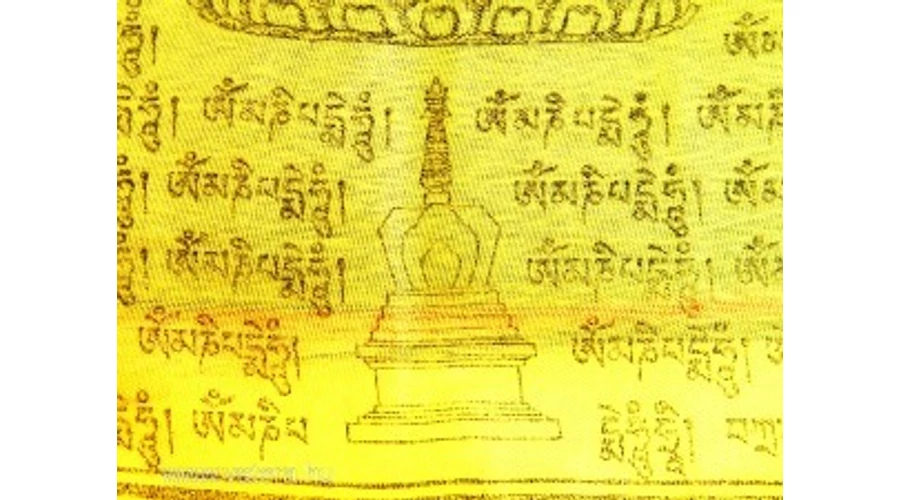 ཧཱུྃ། ཨོཾ་མ
ཧཱུྃ། ཨོཾ་མ་ཎི་པདྨེ་ཧཱུྃ། ཨོཾ་མ་ཎི་པདྨེ་ཧཱུྃ། ཨོཾ་མ་ཎི
ཧཱུྃ། ཨོཾ་མ་ཎི་པདྨེ་ཧཱུྃ། ཨོཾ་མ་ཎི་པདྨེ་ཧཱུྃ། ཨོཾ་མ
ཧཱུྃ། ཨོཾ་མ་ཎི་པདྨེ་ཧཱུྃ། ཨོཾ་མ་ཎི་པདྨེ་ཧཱུྃ། ཨོཾ་མ
ཨོཾ་མ་ཎི་པདྨེ་ཧཱུྃ། ཨོཾ་མ་ཎི་པདྨེ་ཧཱུྃ།
ཧཱུྃ། ཨོཾ་མ་ཎི་པ